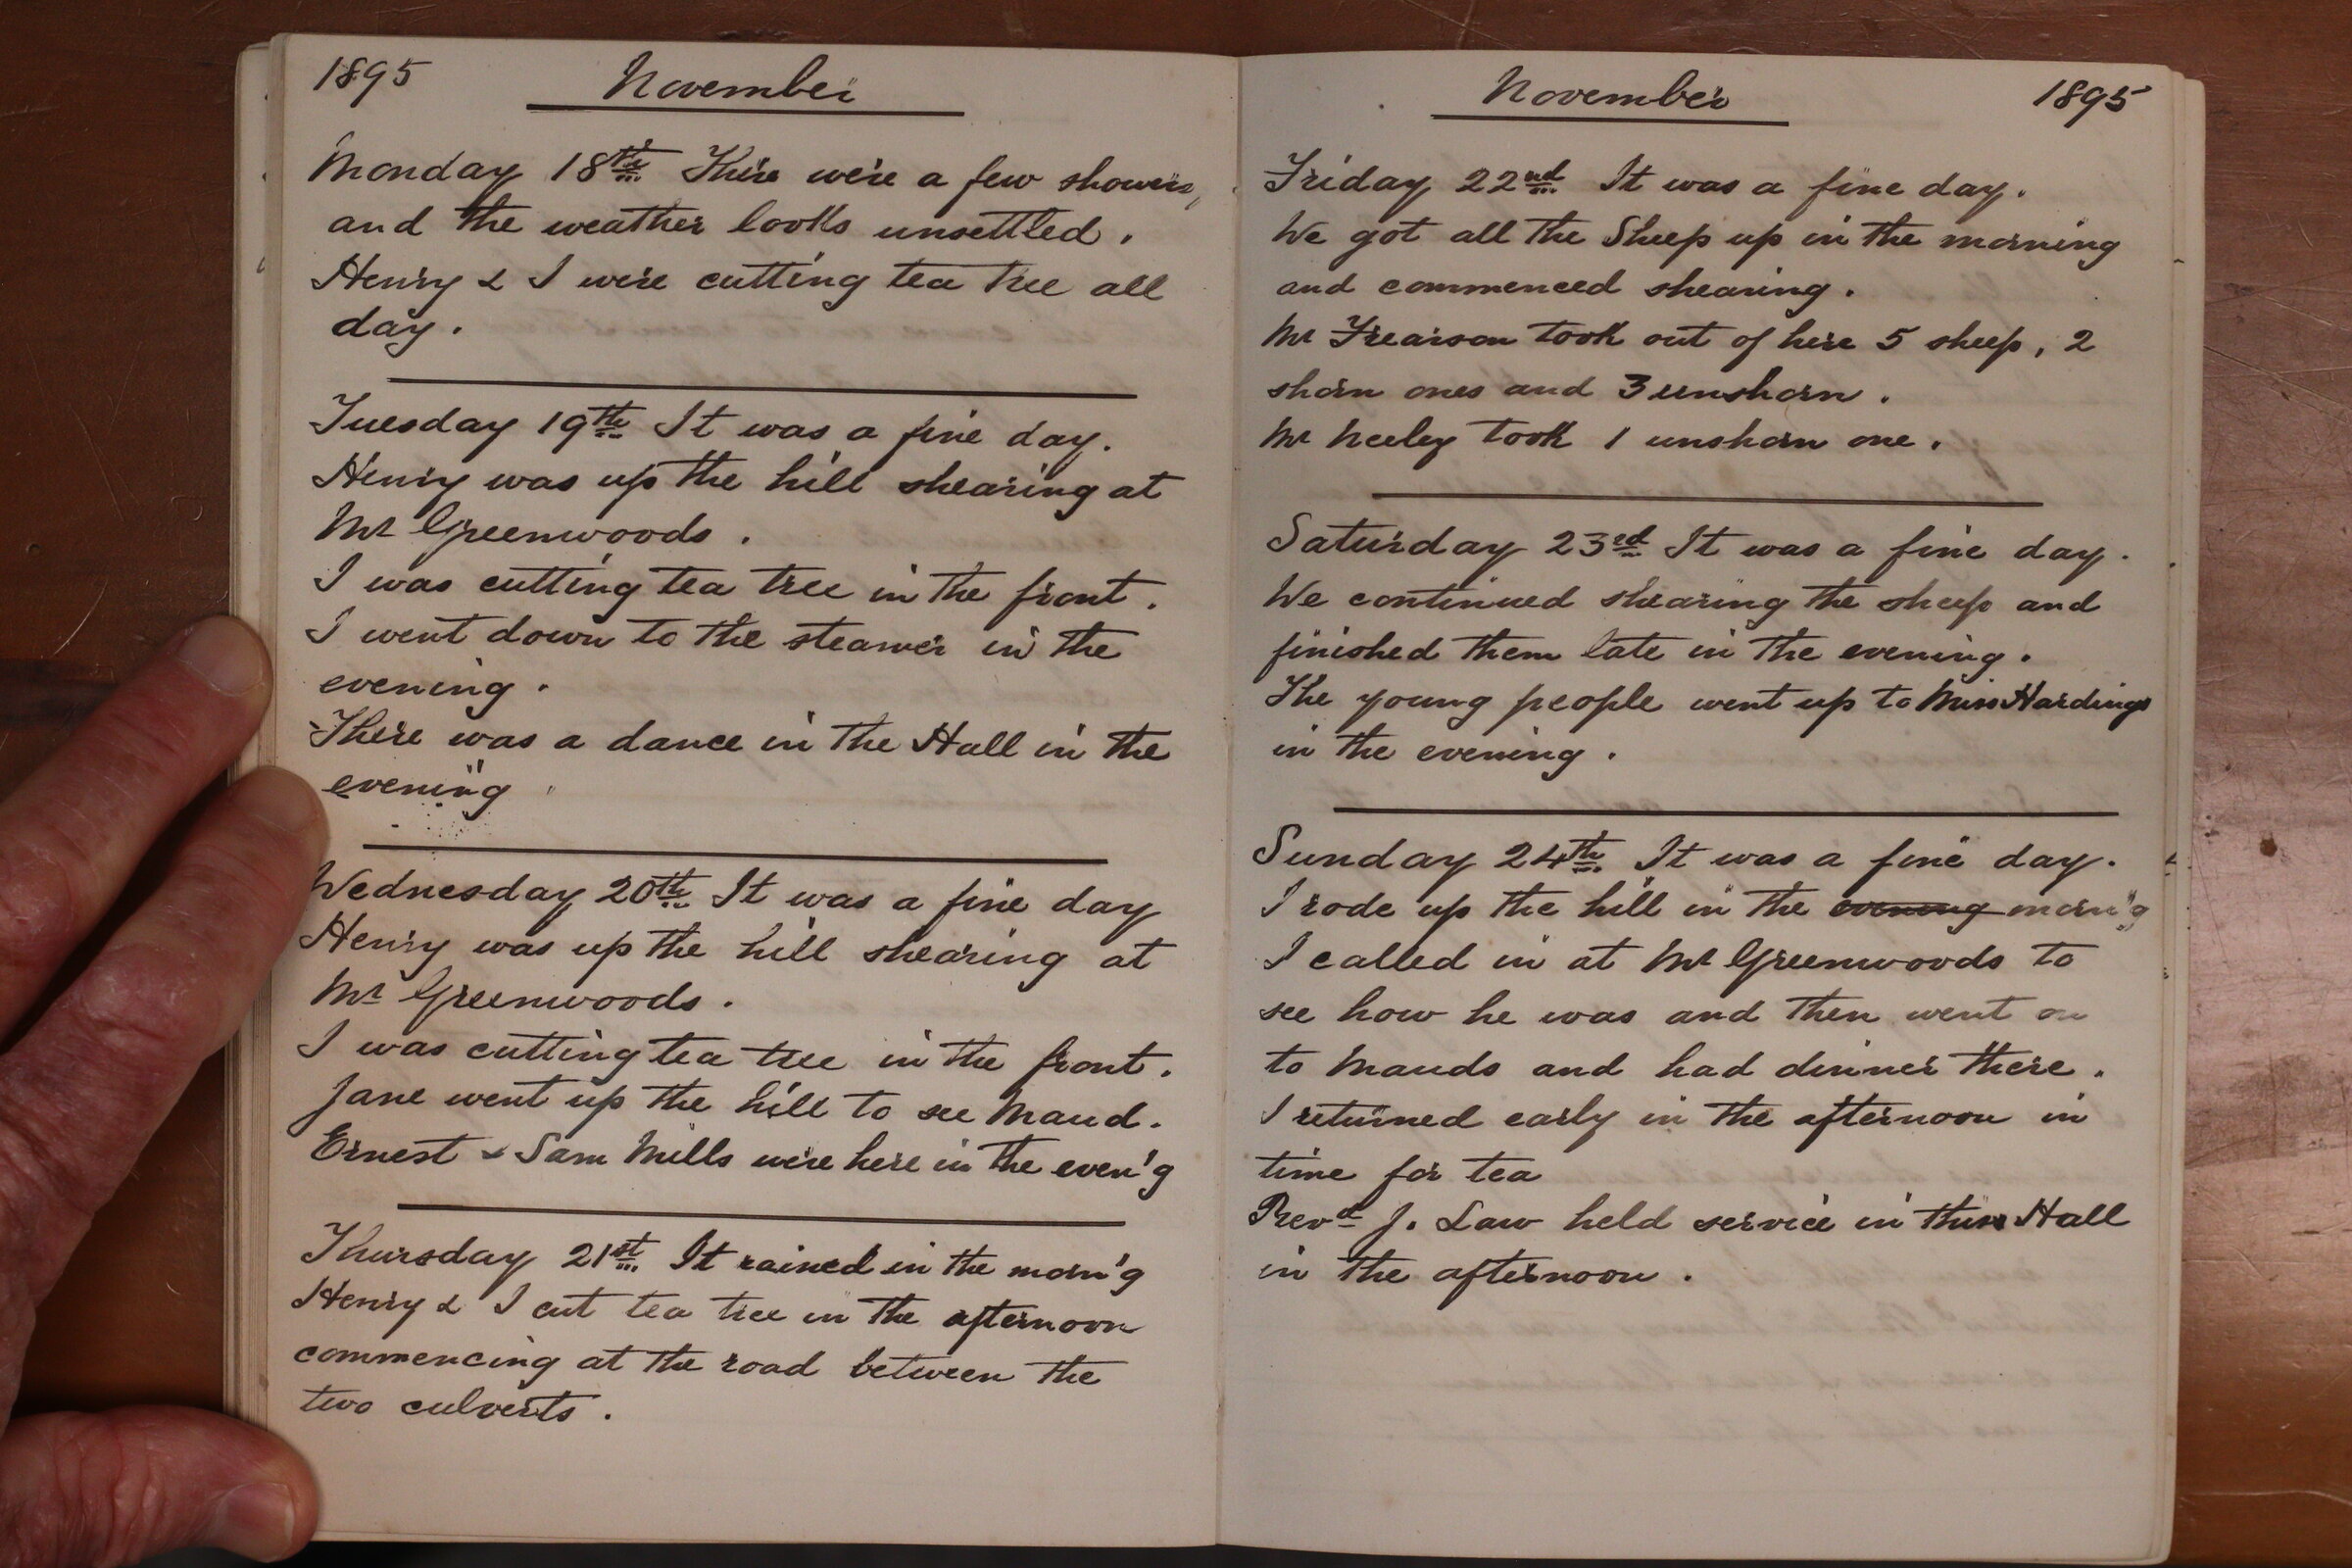 1895 November
Monday 18th There were a few showers,
and the weather looks unsettled.
Henry & I were cutting tea tree all
day.
Tuesday 19th It was a fine day.
Henry was up the hill shearing at
Mr Greenwoods.
I was cutting tea tree in the front.
I went down to the steamer in the
evening.
There was a dance in the Hall in the
evening
Wednesday 20th It was a fine day
Henry was up the hill shearing at
Mr Greenwoods.
I was cutting tea tree in the front.
Jane went up the hill to see Maud.
Ernest & Sam Mills were here in the even'g
Thursday 21st It rained in the morn'g
Henry & I cut tea tree in the afternoon
commencing at the road between the
two culverts.
November 1895
Friday 22nd It was a fine day.
We got all the Sheep up in the morning
and commenced shearing.
Mr Frearson took out of here 5 sheep, 2
shorn ones and 3 unshorn.
Mr Neeley took 1 unshorn one.
Saturday 23rd It was a fine day.
We continued shearing the sheep and
finished them late in the evening.
The young people went up to Miss Hardings
in the evening.
Sunday 24th It was a fine day.
I rode up the hill in the evening morn'g
I called in at Mr Greenwoods to
see how he was and then went on
to Mauds and had dinner there.
I returned early in the afternoon in
time for tea
Revd J. Law held service in the Hall
in the afternoon.